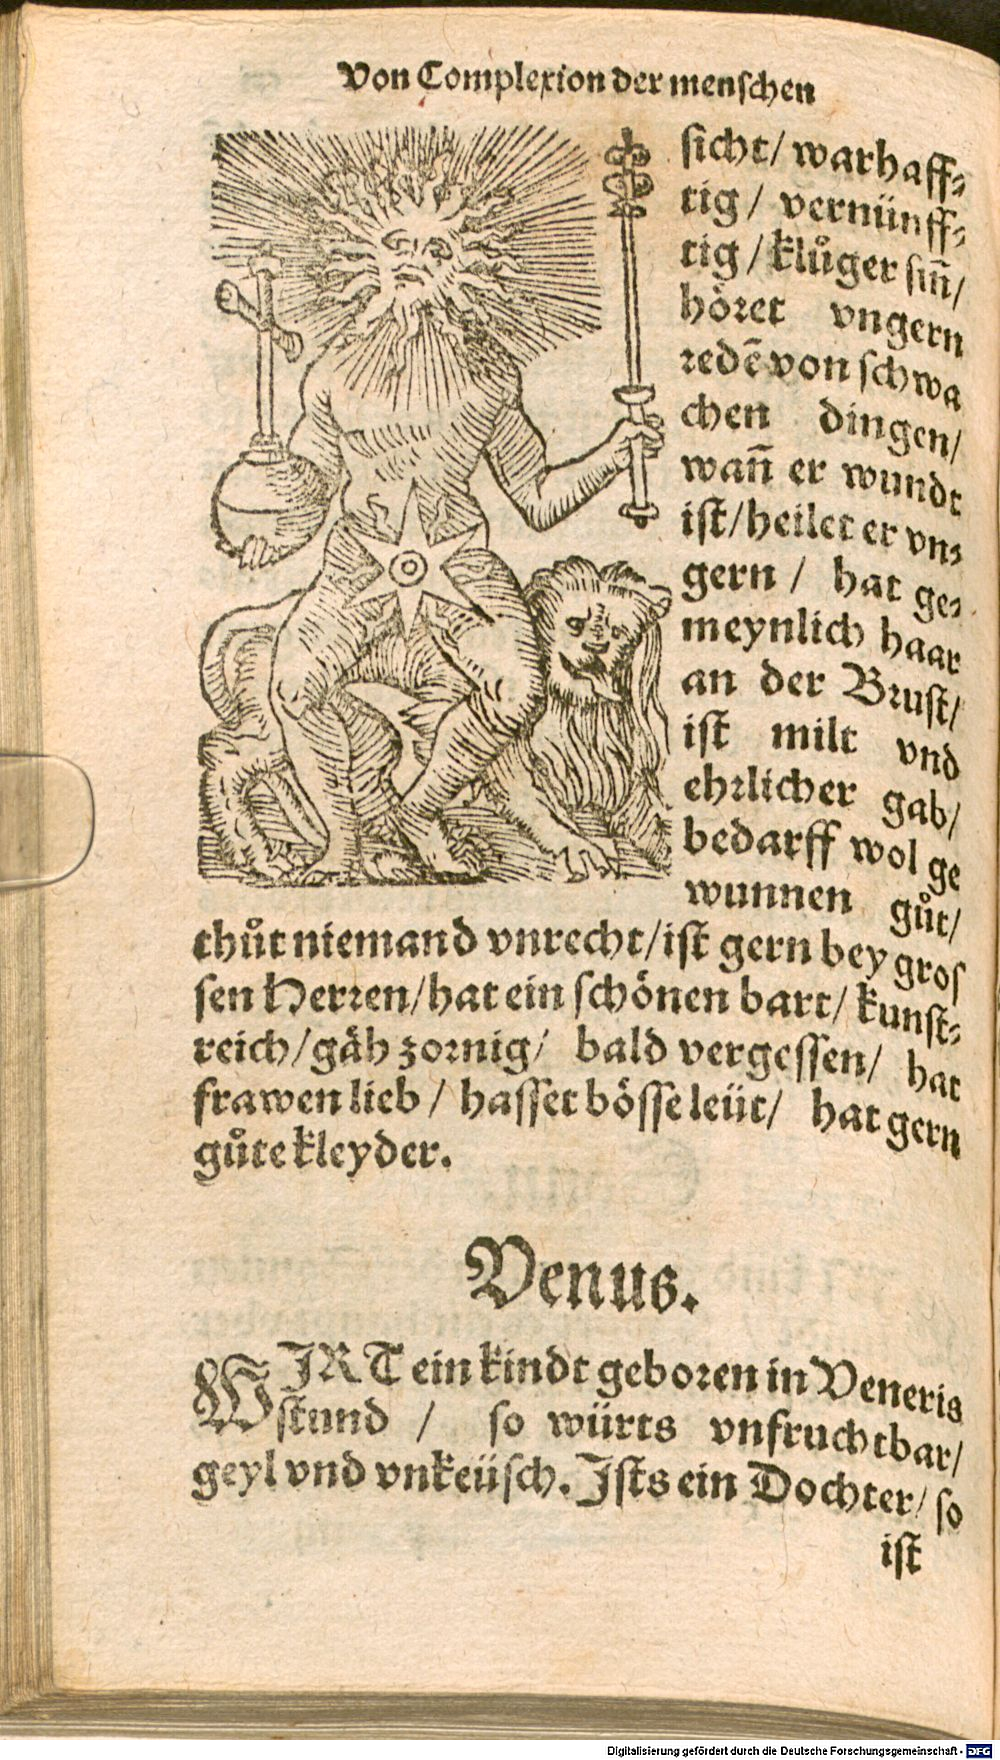 Von Complexion der menschen
sicht/ warhaff⸗
tig/ vernünff⸗
tig/ klůger sin̄/
höret vngern
redē von schwa
chen dingen/
wan̄ er wundt
ist/ heilet er vn⸗
gern / hat ge⸗
meynlich haar
an der Brust/
ist milt vnd
ehrlicher gab/
bedarff wol ge
wunnen gůt/
thůt niemand vnrecht/ ist gern bey gros
sen Herren/ hat ein schönen bart/ kunst⸗
reich/ gäh zornig/ bald vergessen/ hat
frawen lieb / hasset bösse leüt/ hat gern
gůte kleyder.
Venus.
WJRT ein kindt geboren in Veneris
stund / so würts vnfruchtbar/
geyl vnd vnkeüsch. Jsts ein Dochter/ so
ist
Digitalisierung gefördert durch die Deutsche Forschungsgemeinschaft - DFG